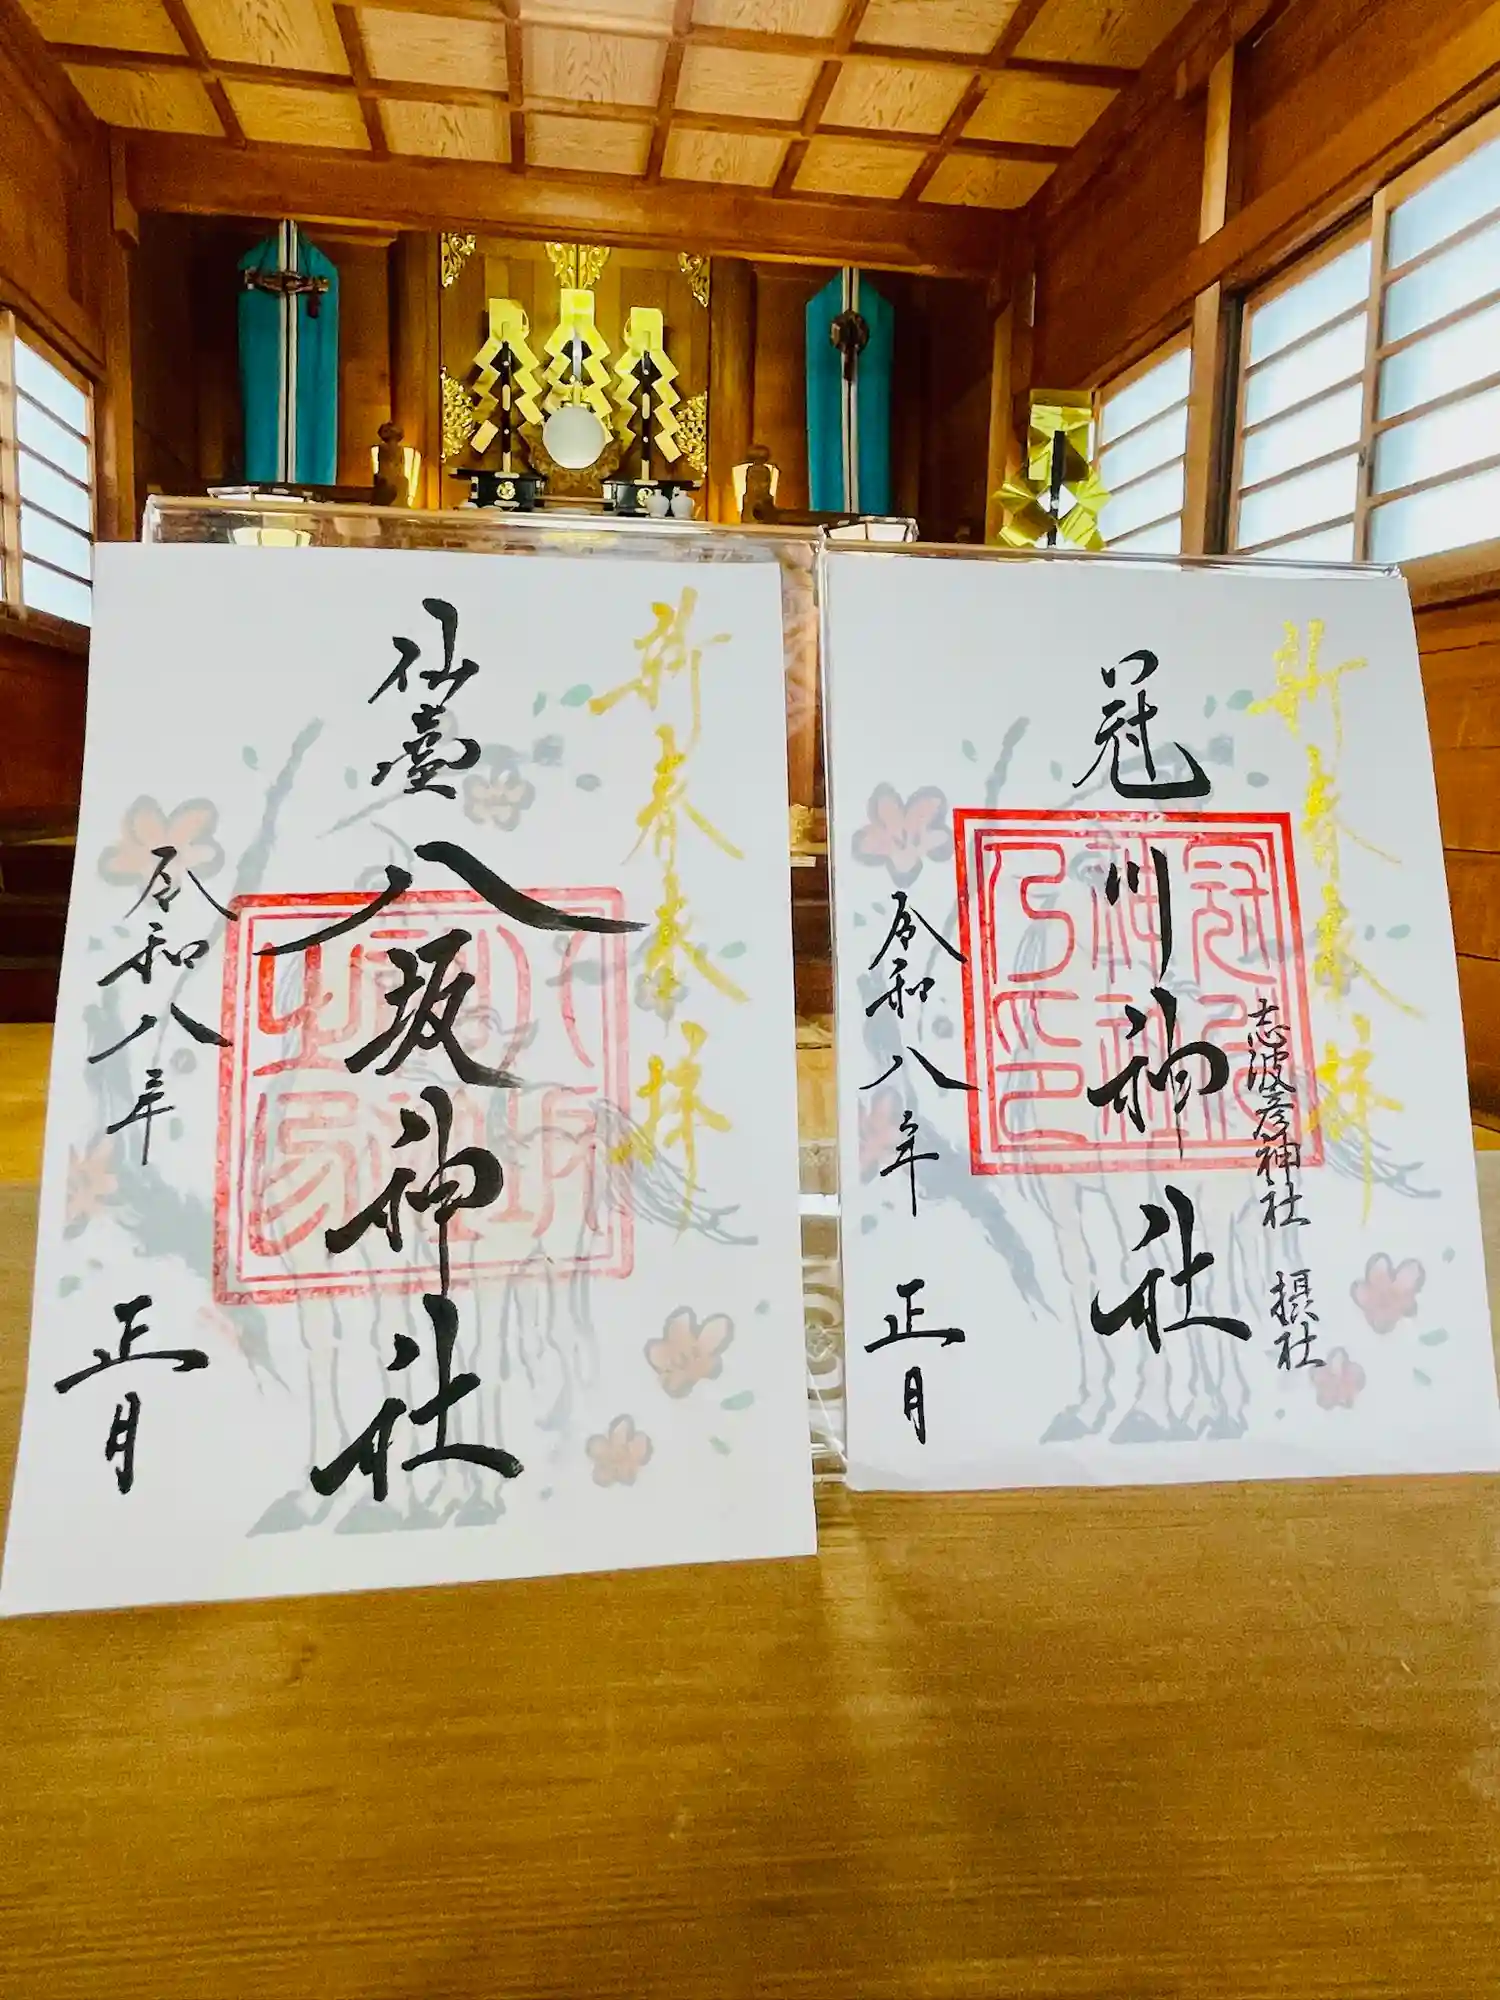 新春奉拝
仙臺
八坂神社
令和八年
正月
新春奉拝
志波彦神社 摂社
冠川神社
令和八年
正月